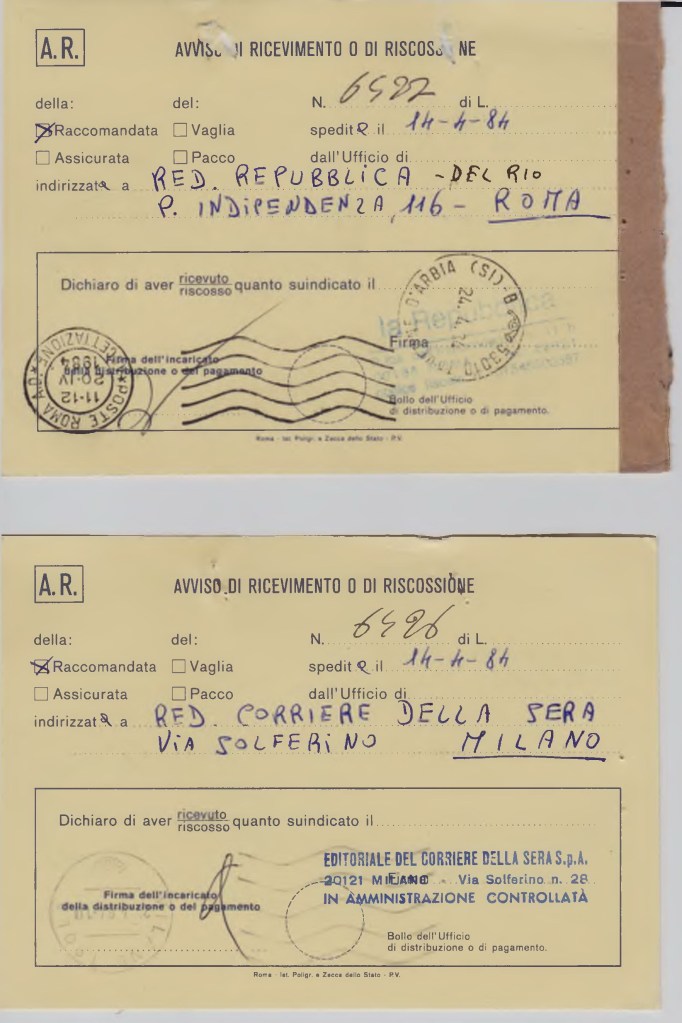 A.R. AVVISO DI RICEVIMENTO O DI RISCOSSIONE
della: del: N. 6527 di L.
Raccomandata Vaglia spedita il 14-4-84
Assicurata Pacco dall'Ufficio di
indirizzata a RED. REPUBBLICA - DEL RIO
P. INDIPENDENZA, 116 - ROMA
Dichiaro di aver ricevuto
riscosso quanto suindicato il
D'ARBIA (SI) - B
24.4.84
53010
la Repubblica
Firma
Firma dell'incaricato
della distribuzione o del pagamento
POSTE ROMA
11-12
20·IV
1984
ACCETTAZIONE
Bollo dell'Ufficio
di distribuzione o di pagamento.
Roma - Ist. Poligr. e Zecca dello Stato - P.V.
A.R. AVVISO DI RICEVIMENTO O DI RISCOSSIONE
della: del: N. 6526 di L.
Raccomandata Vaglia spedita il 14-4-84
Assicurata Pacco dall'Ufficio di
indirizzata a RED. CORRIERE DELLA SERA
VIA SOLFERINO MILANO
Dichiaro di aver ricevuto
riscosso quanto suindicato il
EDITORIALE DEL CORRIERE DELLA SERA S.p.A.
20121 MILANO Via Solferino n. 28
IN AMMINISTRAZIONE CONTROLLATA
Firma
Firma dell'incaricato
della distribuzione o del pagamento
Bollo dell'Ufficio
di distribuzione o di pagamento.
Roma - Ist. Poligr. e Zecca dello Stato - P.V.